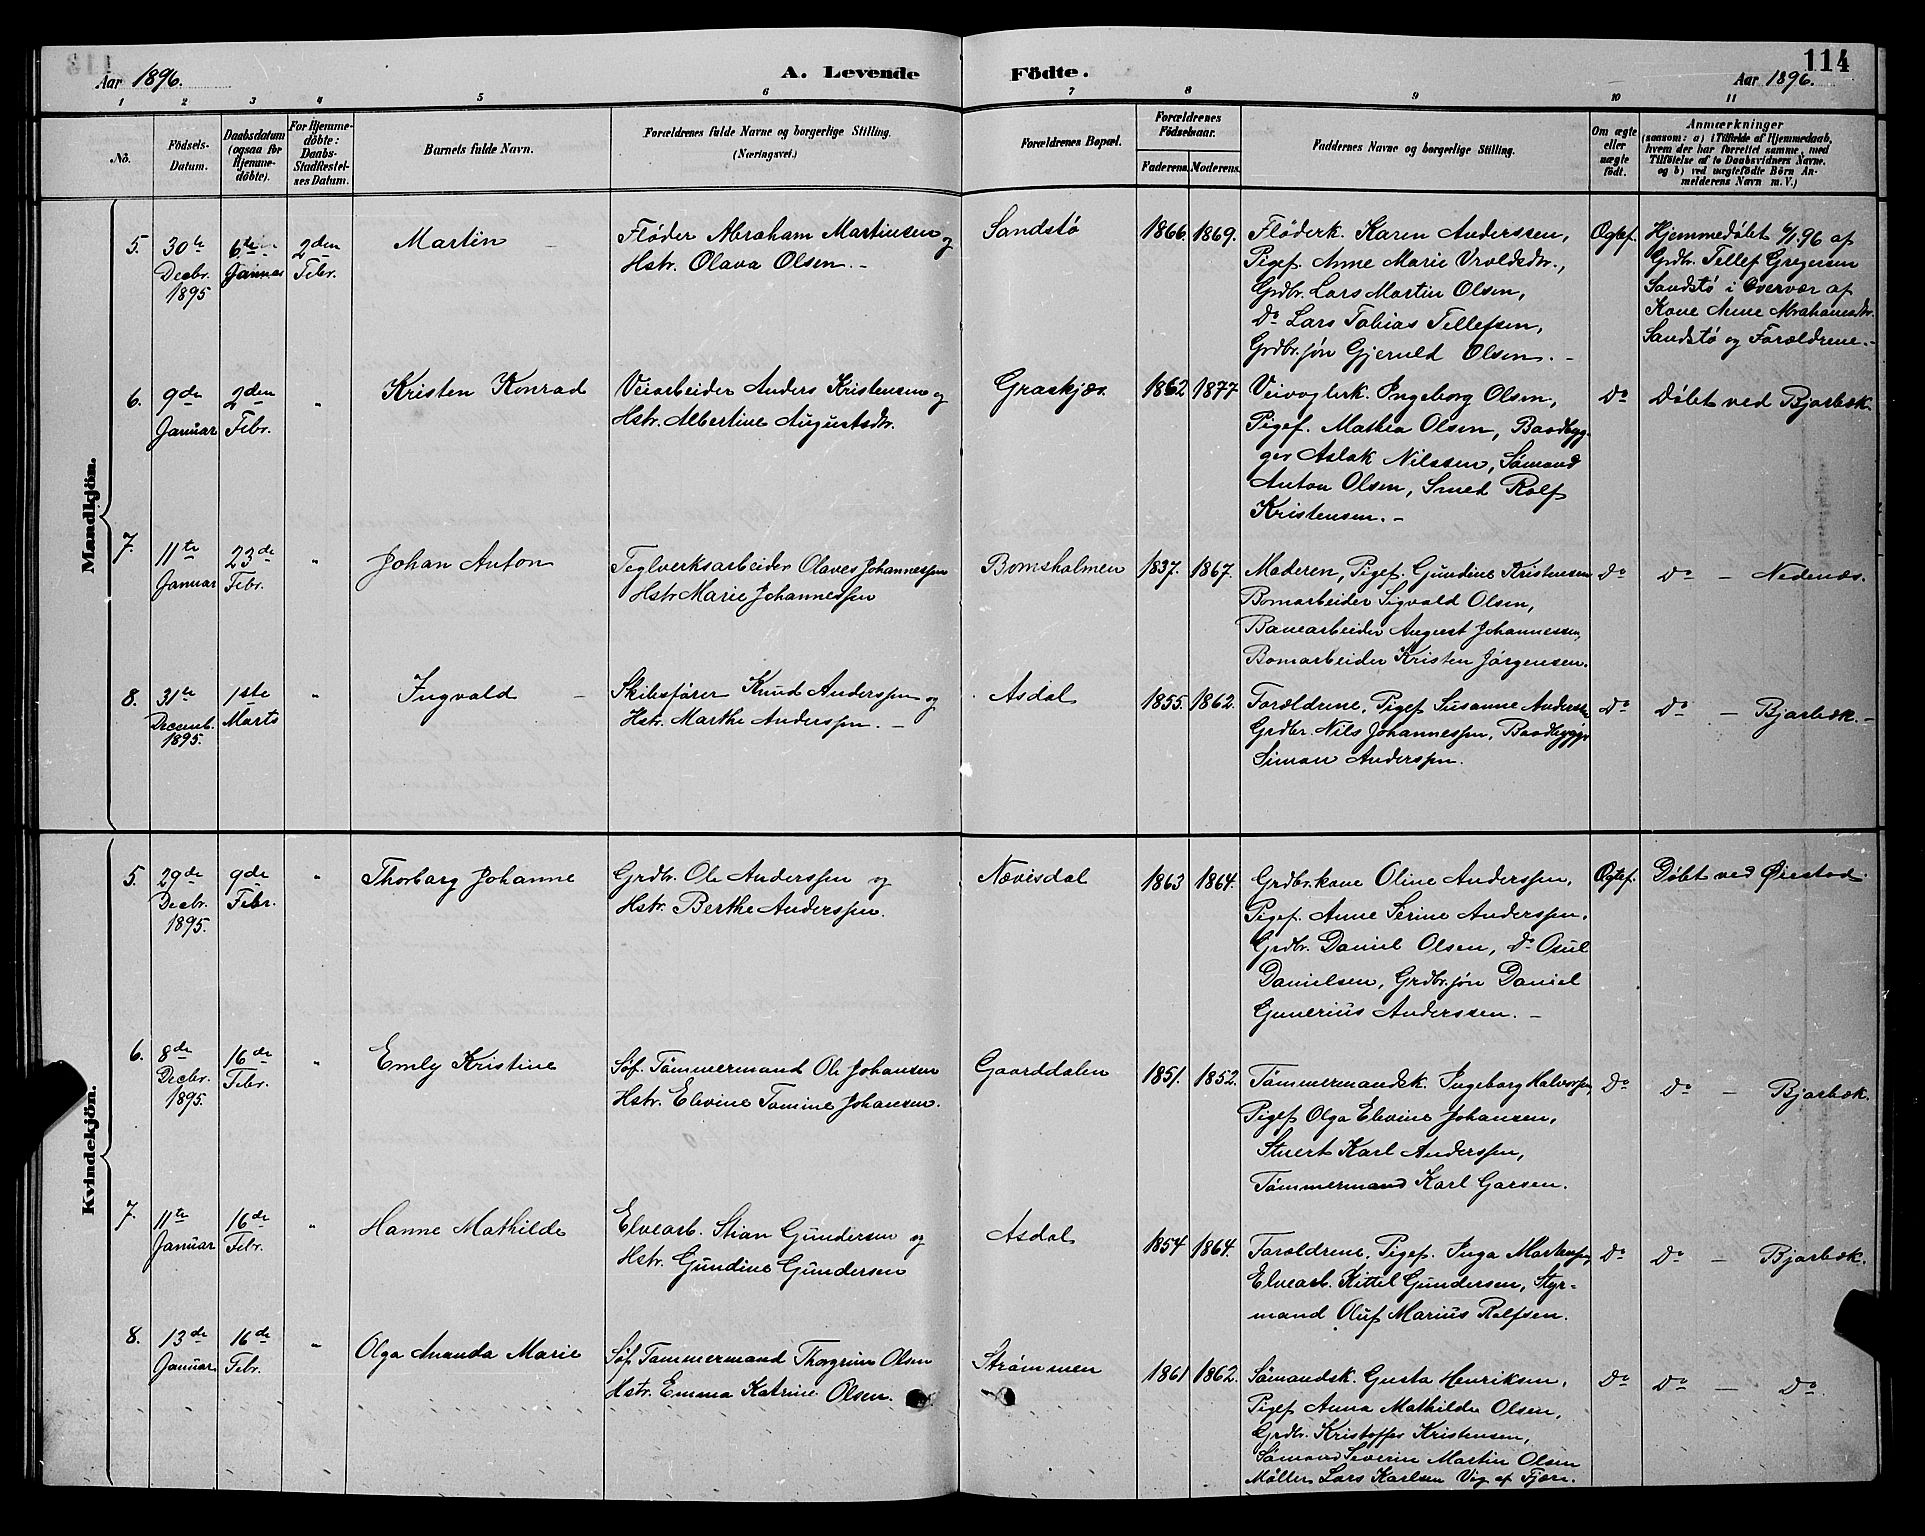 114
Aar 1896.
A. Levende Födte.
Aar 1896.
1 2 3 4 5 6 7 8 9 10 11
No.
Födsels-Datum.
Daabsdatum (ogsaa for Hjemmedöbte).
For Hjemmedöbte: Daabs-Stadfæstelses Datum.
Barnets fulde Navn.
Forældrenes fulde Navne og borgerlige Stilling.
(Næringsvei.)
Forældrenes Bopæl.
Forældrenes Födselsaar.
Faderens. Moderens.
Faddernes Navne og borgerlige Stilling.
Om ægte eller uægte født.
Anmærkninger
(saasom: a) i Tilfælde af Hjemmedaab,
hvem der har forrettet samme, med
Tilföielse af to Daabsvidners Navne.
og b) ved uægtefödte Börn An-
melderens Navn m. V.)
Mandkjön.
5. 30te Decbr. 1895
6te Januar
2den Febr.
Martin
Fløder Abraham Martinsen og
Hstr. Olava Olsen.
Sandstø
1866. 1869.
Fløderk. Karen Anderssen,
Pigef. Anne Marie Vroldsdtr.,
Grdbr. Lars Martin Olsen,
Do Lars Tobias Tellefsen,
Grdbr.søn Gjeruld Olsen.
Ægtef.
Hjemmedøbt 6/1 96 af
Grdbr. Tellef Gregersen
Sandstø i Overvær af
Kone Anne Abrahamsdtr.
Sandstø og Forældrene.
6. 9de Januar
2den Febr.
"
Kristen Konrad
Veiarbeider Anders Kristensen og
Hstr. Albertine Augustsdtr.
Graskjær
1862 1877
Veivogterk. Ingeborg Olsen,
Pigef. Mathea Olsen, Baadbyg-
ger Aslak Nilssen, Sømand
Anton Olsen, Smed Rolf
Kristensen.
Do
Døbt ved Bjorbæk.
7. 11te Januar
23de Febr.
"
Johan Anton
Teglverksarbeider Olaves Johannessen
Hstr. Marie Johannessen
Bomsholmen
1837. 1867.
Moderen, Pigef. Gundine Kristensen
Bomarbeider Sigvald Olsen,
Banearbeider August Johannessen,
Bomarbeider Kristen Jørgensen.
Do
Do - Nedenæs.
8. 31te Decemb. 1895.
1ste Marts
"
Ingvald
Skibsfører Knud Anderssen og
Hstr. Marthe Anderssen.
Asdal
1855. 1862.
Forældrene, Pigef. Susanne Anderssen
Grdbr. Nils Johannessen, Baadbygger
Simon Anderssen.
Do
Do - Bjorbæk.
Kvindekjön.
5. 29de Decbr. 1895.
9de Febr.
"
Thorborg Johanne
Grdbr. Ole Anderssen og
Hstr. Berthe Anderssen.
Nævisdal
1863 1864.
Grdbr.kone Oline Anderssen,
Pigef. Anne Serine Anderssen.
Grdbr. Daniel Olsen, Do Osul
Danielsen, Grdbr.søn Daniel
Gunerius Anderssen.
Ægtef.
Døbt ved Øiestad
6. 8de Decbr. 1895.
16de Febr.
"
Emly Kristine
Søf. Tømmermand Ole Johansen
Hstr. Elevine Tomine Johansen.
Gaarddalen
1851. 1852.
Tømmermandsk. Ingeborg Halvorsen,
Pigef. Olga Elevine Johansen,
Stuert Karl Anderssen,
Tømmermand Karl Garsen.
Do
Do - Bjorbæk.
7. 11te Januar
16de Febr.
"
Hanne Mathilde
Elvearb. Stian Gundersen og
Hstr. Gundine Gundersen
Asdal
1854 1864.
Forældrene, Pigef. Inga Mortensen,
Elvearb. Kittel Gundersen, Styr-
mand Oluf Marius Rolfsen.
Do
Do - Bjorbæk.
8. 13de Januar
16de Febr.
"
Olga Amanda Marie
Søf. Tømmermand Thorgrim Olsen
Hstr. Emma Katrine Olsen.
Strømmen
1861 1862.
Sømandsk. Gusta Henriksen,
Pigef. Anna Mathilde Olsen,
Grdbr. Kristoffer Kristensen,
Sømand Severin Martin Olsen
Møller Lars Karlsen Vig af Fjære.
Do
Do - Do.